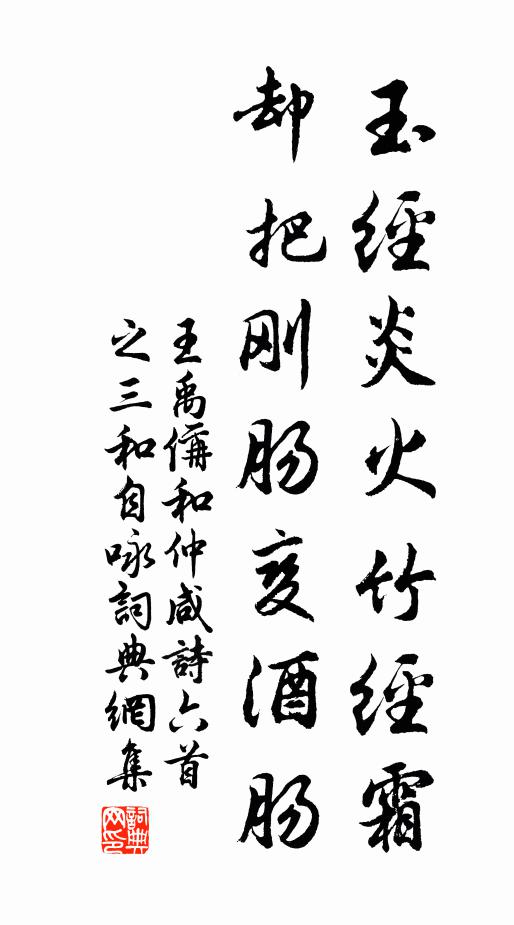 玉經炎火竹經霜
却把刚肠变酒肠
王禹偁和仲咸詩六首
之三和自咏詞典網集
詞典网印